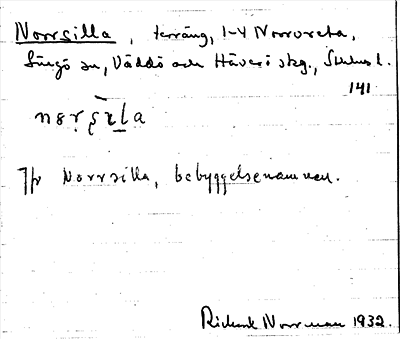 Norrsilla, terräng, 1-4 Norrvreta,
Singö sn, Väddö och Häverö skg., Sthlms l.
141
Jfr Norrsilla, bebyggelsenamnen.
Rickard Norrman 1932.